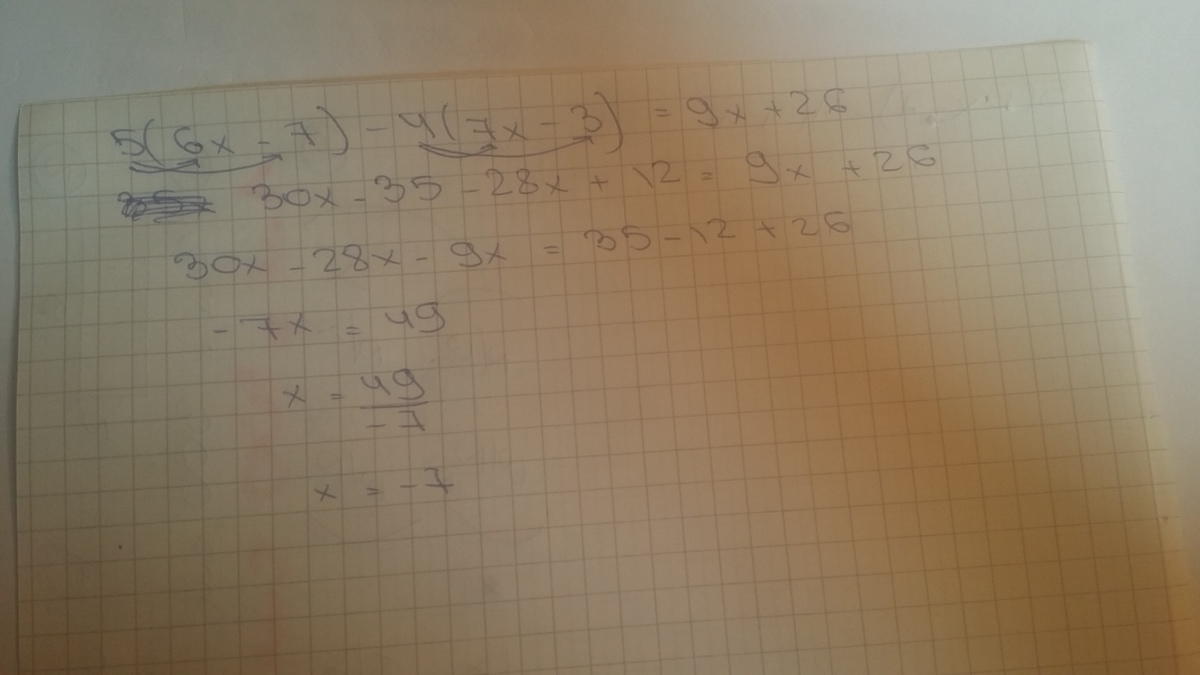 5(6x - 7) - 4(7x - 3) = 9x + 26
30x - 35 - 28x + 12 = 9x + 26
30x - 28x - 9x = 35 - 12 + 26
- 7x = 49
x = 49/-7
x = -7